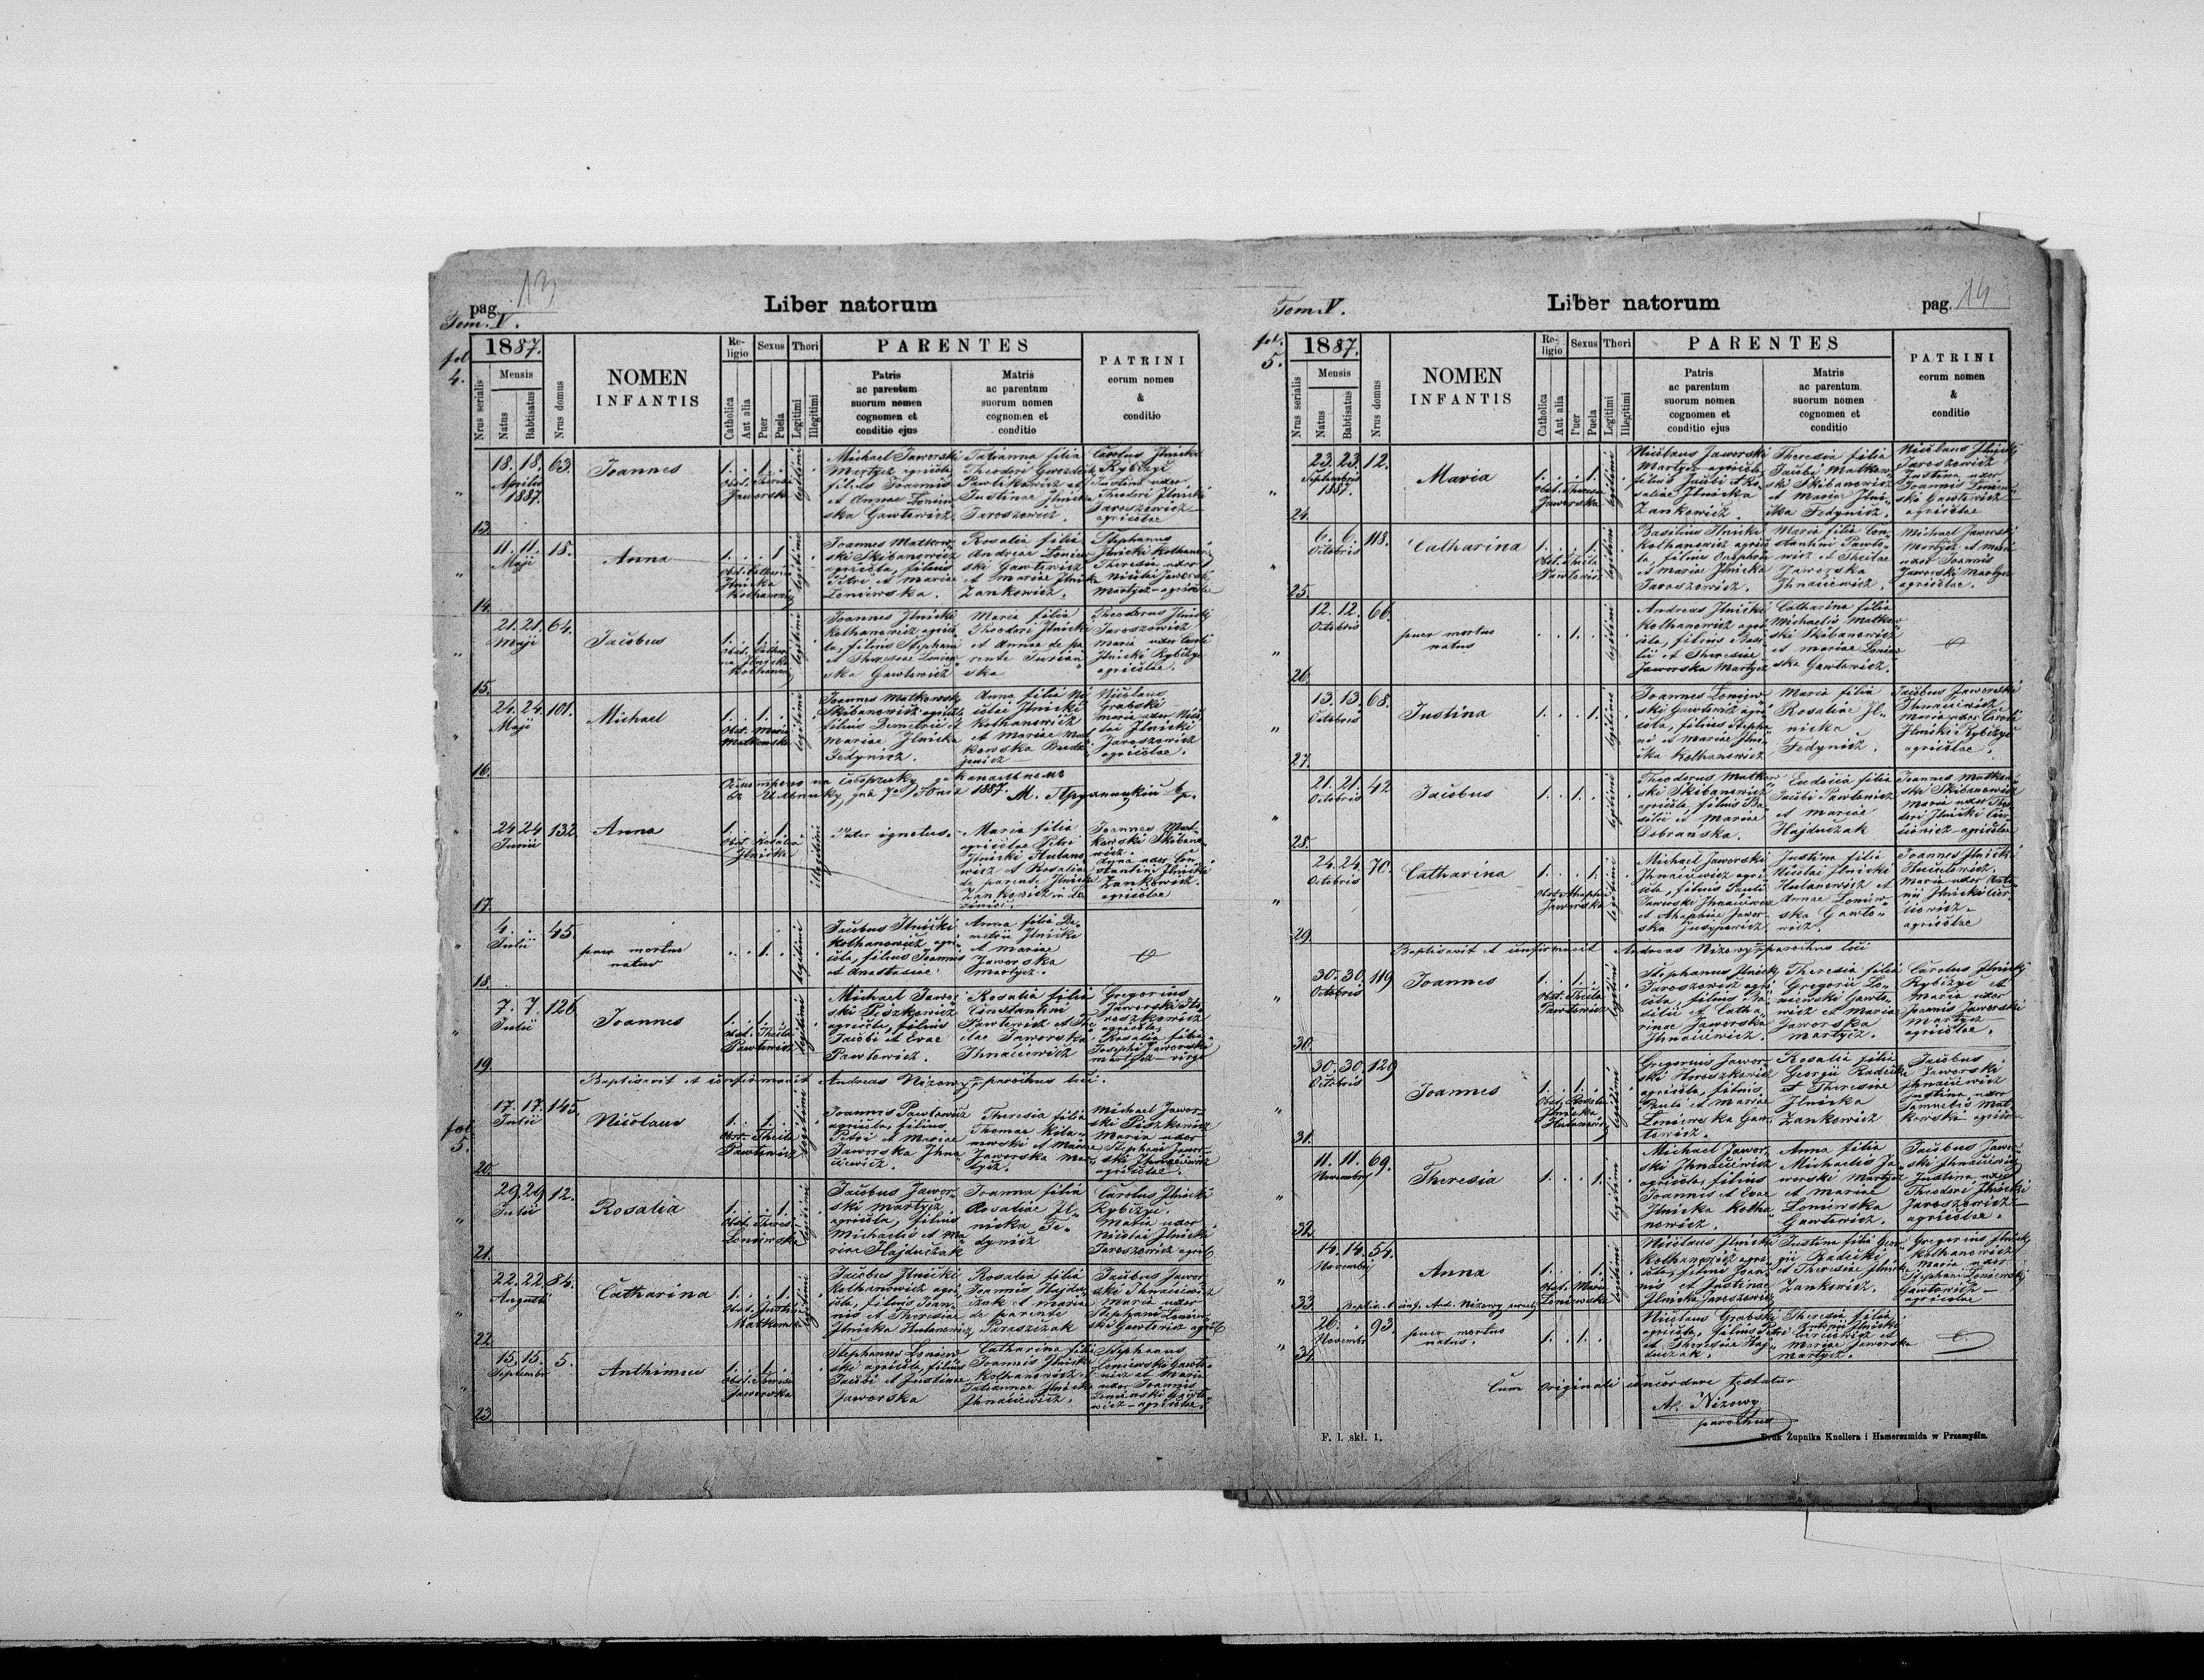 pag. 13
Liber natorum
Tom. V.
fol. 4.
1887.
Nrus serialis
Mensis
Natus
Babtisatus
Nrus domus
NOMEN
INFANTIS
Re-
ligio
Catholica
Aut alia
Sexus
Puer
Puela
Thori
Legitimi
Illegitimi
PARENTES
Patris
ac parentum
suorum nomen
cognomen et
conditio ejus
Matris
ac parentum
suorum nomen
cognomen et
conditio
PATRINI
eorum nomen
&
conditio
13.
18. 18. 63.
Aprilis
1887.
Joannes
1. . 1. .
Obst. Theresia
Jaworska
legitimi
Michael Jaworski
Martycz agricola
filius Joannis
et Annae Loniew
ska Gawlewicz
Tatianna filia
Theodori Gwozdecki
Pawlikowicz et
Justinae Ilnicka
Jaroszewicz.
Carolus Ilnicki
Rybczyc
Justina uxor
Theodori Ilnicki
Jaroszewicz
agricolae
14.
11. 11. 18.
Maji
Anna
1. . . 1
Obst. Catharina
Ilnicka
legitimi
Joannes Matkow
ski Skibanowicz
agricola, filius
Petri et Mariae
Loniewska.
Rosalia filia
Andreae Loniew
ski Gawlewicz
et Mariae Ilnicka
Zankowicz.
Stephanus
Ilnicki Kolhanowicz
Theresia uxor
Nicolai Jaworski
Martycz agricolae
15.
21. 21. 64.
Maji
Jacobus
1. . 1. .
Obst. Cathari
na Ilnicka
legitimi
Joannes Ilnicki
Kolhanowicz agrico
la, filius Stephani
et Theresiae Loniew
ska Gawlewicz
Maria filia
Theodori Ilnicki
et Annae de pa
rente Turian
ska
Theodorus Ilnicki
Jaroszewicz
Maria
uxor Caroli
Ilnicki Rybczyc
agricolae.
16.
24. 24. 101.
Maji
Michael
1. . 1. .
Obst. Maria
Matkowska
legitimi
Joannes Matkowski
Skibanowicz agricola
filius Demetrii et
Mariae Ilnicka
Fedynicz.
Anna filia Ni
colai Ilnicki
Kolhanowicz
et Mariae Mat
kowska
Nicolaus
Grabski
Maria uxor Nico
lai Ilnicki
Jaroszewicz
agricolae.
1887.
17.
24 24 132.
Junii
Anna
1. . . 1.
Obst. Rosalia
Ilnicka
illegitimi
Pater ignotus.
Maria filia
agricolae Petri
Ilnicki Hulano
wicz et Rosaliae
de parente Ilnicka
Zankowicz
Joannes Mat
kowski Skibano
wicz.
Anna uxor Con
stantini Ilnicki
Zankowicz.
agricolae
18.
4. . 45.
Julii
puer mortuus
natus
. . 1. .
legitimi
Jacobus Ilnicki
Kolhanowicz agri
cola, filius Joannis
et Anastasiae
Anna filia De
metrii Ilnicki
et Mariae
Jaworska
Martycz.
19.
7. 7. 126
Julii
Joannes
1. . 1. .
Obst. Thecla
Pawlewicz
legitimi
Michael Jawor
ski Piszkowicz
agricola, filius
Jacobi et Evae
Pawlewicz.
Rosalia filia
Constantini
Pawlewicz et The
clae Jaworska
Ihnaciewicz
Gregorius
Jaworski Ho
roszkowicz
agricola,
Rosalia filia
Josephi Jaworski
Martycz – virgo
Baptisavit et confirmavit Andreas Nizowy parochus loci.
fol. 5.
20.
17. 17. 145.
Julii
Nicolaus
1. . 1. .
Obst. Thecla
Pawlewicz
legitimi
Joannes Pawlewicz
agricola, filius
Petri et Mariae
Jaworska Ihna
ciewicz.
Theresia filia
Thomae Kila
nowski et Mariae
Jaworska Mar
tycz.
Michael Jawor
ski Piszkowicz
Maria uxor
Stephani Jawor
ski Ihnaciewicz
agricolae.
21.
29 29 12.
Julii
Rosalia
1. . . 1.
Obst. Theres.
Loniewska
legitimi
Jacobus Jawor
ski Martycz
agricola, filius
Michaelis et Ma
riae Hajduczak
Joanna filia
Rosaliae Il
nicka Fe
dynicz
Carolus Ilnicki
Rybczyc.
Maria uxor
Nicolai Ilnicki
Jaroszewicz agricol.
22.
22. 22. 84.
Augusti
Catharina
1. . . 1.
Obst. Justina
Matkowska
legitimi
Jacobus Ilnicki
Kolhanowicz agri
cola, filius Joan
nis et Theresiae
Ilnicka Hulanowicz
Rosalia filia
Joannis Hajdu
czak et Mariae
de parente
Paraszczak
Jacobus Jawor
ski Ihnaciewicz
Maria uxor
Stephani Loniew
ski Gawlewicz agricol.
23
15. 15. 5.
Septembr.
Anthimus
1. . 1. .
Obst. Theresia
Jaworska
Stephanus Loniew
ski agricola, filius
Jacobi et Justinae
Jaworska
Catharina filia
Joannis Ilnicki
Kolhanowicz et
Tatiannae Ilnicka
Ihnaciewicz.
Stephanus
Loniewski Gawle
wicz et Maria
uxor Joannis
Loniewski Gawle
wicz – agricolae.
Tom. V.
Liber natorum
pag. 14
fol. 5.
1887.
Nrus serialis
Mensis
Natus
Babtisatus
Nrus domus
NOMEN
INFANTIS
Re-
ligio
Catholica
Aut alia
Sexus
Puer
Puela
Thori
Legitimi
Illegitimi
PARENTES
Patris
ac parentum
suorum nomen
cognomen et
conditio ejus
Matris
ac parentum
suorum nomen
cognomen et
conditio
PATRINI
eorum nomen
&
conditio
24.
23. 23. 12.
Septembris
1887.
Maria
1. . . 1.
Obst. Theresia
Jaworska
legitimi
Nicolaus Jaworski
Martycz agricola
filius Jacobi et Ro
saliae Ilnicka
Zankowicz
Theresia filia
Jacobi Matkow
ski Skibanowicz
et Mariae Ilni
cka Fedynicz.
Nicolaus Ilnicki
Jaroszewicz
Justina uxor
Joannis Loniew
ski Gawlewicz
agricolae
25.
6. 6. 118.
Octobris
Catharina
1. . . 1.
Obst. Thecla
Pawlewicz
legitimi
Basilius Ilnicki
Kolhanowicz agrico
la, filius Onophrii
et Mariae Ilnicka
Jaroszewicz.
Maria filia Con
stantini Pawle
wicz et Theclae
Jaworska
Ihnaciewicz.
Michael Jaworski
Martycz et Maria
uxor Joannis
Jaworski Martycz
agricolae.
26.
12. 12. 66.
Octobris
puer mortuus
natus
. . 1. .
legitimi
Andreas Ilnicki
Kolhanowicz agri
cola, filius Basi
lii et Theresiae
Jaworska Martycz
Catharina filia
Michaelis Matkow
ski Skibanowicz
et Mariae Loniew
ska Gawlewicz.
27.
13. 13. 68.
Octobris
Justina
1. . . 1.
legitimi
Joannes Loniew
ski Gawlewicz agri
cola, filius Stepha
ni et Mariae Ilni
cka Kolhanowicz
Maria filia
Rosaliae Il
nicka
Fedynicz.
Jacobus Jaworski
Ihnaciewicz
Maria uxor Caroli
Ilnicki Rybczyc
agricolae.
28.
21. 21. 42
Octobris
Jacobus
1. . 1. .
legitimi
Theodorus Matkow
ski Skibanowicz
agricola, filius Ba
silii et Mariae
Dobranska.
Eudocia filia
Jacobi Pawlewicz
et Mariae
Hajduczak
Joannes Matkow
ski Skibanowicz
Maria uxor Theo
dori Ilnicki Cur
ciowicz – agricolae
29.
24. 24. 70.
Octobris
Catharina
1. . . 1.
Jaworska
legitimi
Michael Jaworski
Ihnaciewicz agri
cola, filius Pauli
Jaworski Ihnaciewicz
et Ahaphiae Jawor
ska
Justina filia
Nicolai Ilnicki
Hulanowicz et
Annae Loniew
ska Gawle
wicz.
Joannes Ilnicki
Maria uxor Anto
nii Ilnicki Cur
ciowicz
agricolae
Baptisavit et confirmavit Andreas Nizowy parochus loci
30.
30. 30. 119
Octobris
Joannes
1. . 1. .
Obst. Thecla
Pawlewicz
legitimi
Stephanus Ilnicki
Jaroszewicz agri
cola, filius Ba
silii et Catha
rinae Jaworska
Ihnaciewicz.
Theresia filia
Gregorii Lo
niewski Gawle
wicz et Mariae
Jaworska
Martycz.
Carolus Ilnicki
Rybczyc et
Maria uxor
Joannis Jaworski
Martycz
agricolae.
31.
30. 30. 129
Octobris
Joannes
1. . 1. .
Obst. Rosalia
Ilnicka
Hulanowicz
legitimi
Gregorius Jawor
ski Horoszkowicz
agricola, filius
Pauli et Mariae
Loniewska Gaw
lewicz.
Rosalia filia
Georgii Radecki
et Theresiae
Ilnicka
Zankowicz
Jacobus
Jaworski
Ihnaciewicz
Justina uxor
Mat
kowski agricolae
32.
11. 11. 69.
Novembr.
Theresia
1. . . 1.
legitimi
Michael Jawor
ski Ihnaciewicz
agricola, filius
Joannis et Evae
Ilnicka Kolha
nowicz.
Anna filia
Michaelis Ja
worski Martycz
et Mariae
Loniewska
Gawlewicz.
Jacobus Jawor
ski Ihnaciewicz
Justina uxor
Theodori Ilnicki
Jaroszewicz –
agricolae.
33.
14. 14. 54.
Novembr.
Anna
1. . . 1.
Obst. Maria
Loniewska
legitimi
Nicolaus Ilnicki
Kolhanowicz agri
cola, filius Joan
nis et Justinae
Ilnicka Jaroszewicz
Justina filia Geor
gii Radecki
et Theresiae Ilnicka
Zankowicz.
Gregorius Ilnicki
Kolhanowicz
Maria uxor
Stephani Loniewski
Gawlewicz –
agricolae
Baptis. et conf. And. Nizowy paroch.
34.
26. . 93.
Novembr.
puer mortuus
natus.
1. . 1. .
Nicolaus Grabski
agricola, filius Petri
et Theresiae Haj
duczak.
Theresia filia
Antonii Ilnicki
Curciowicz et
Mariae Jaworska
Martycz.
Cum originali concordare testatur
A. Nizowy
parochus
F. l. skł. 1.
Druk Żupnika Knollera i Hamerszmida w Przemyślu.